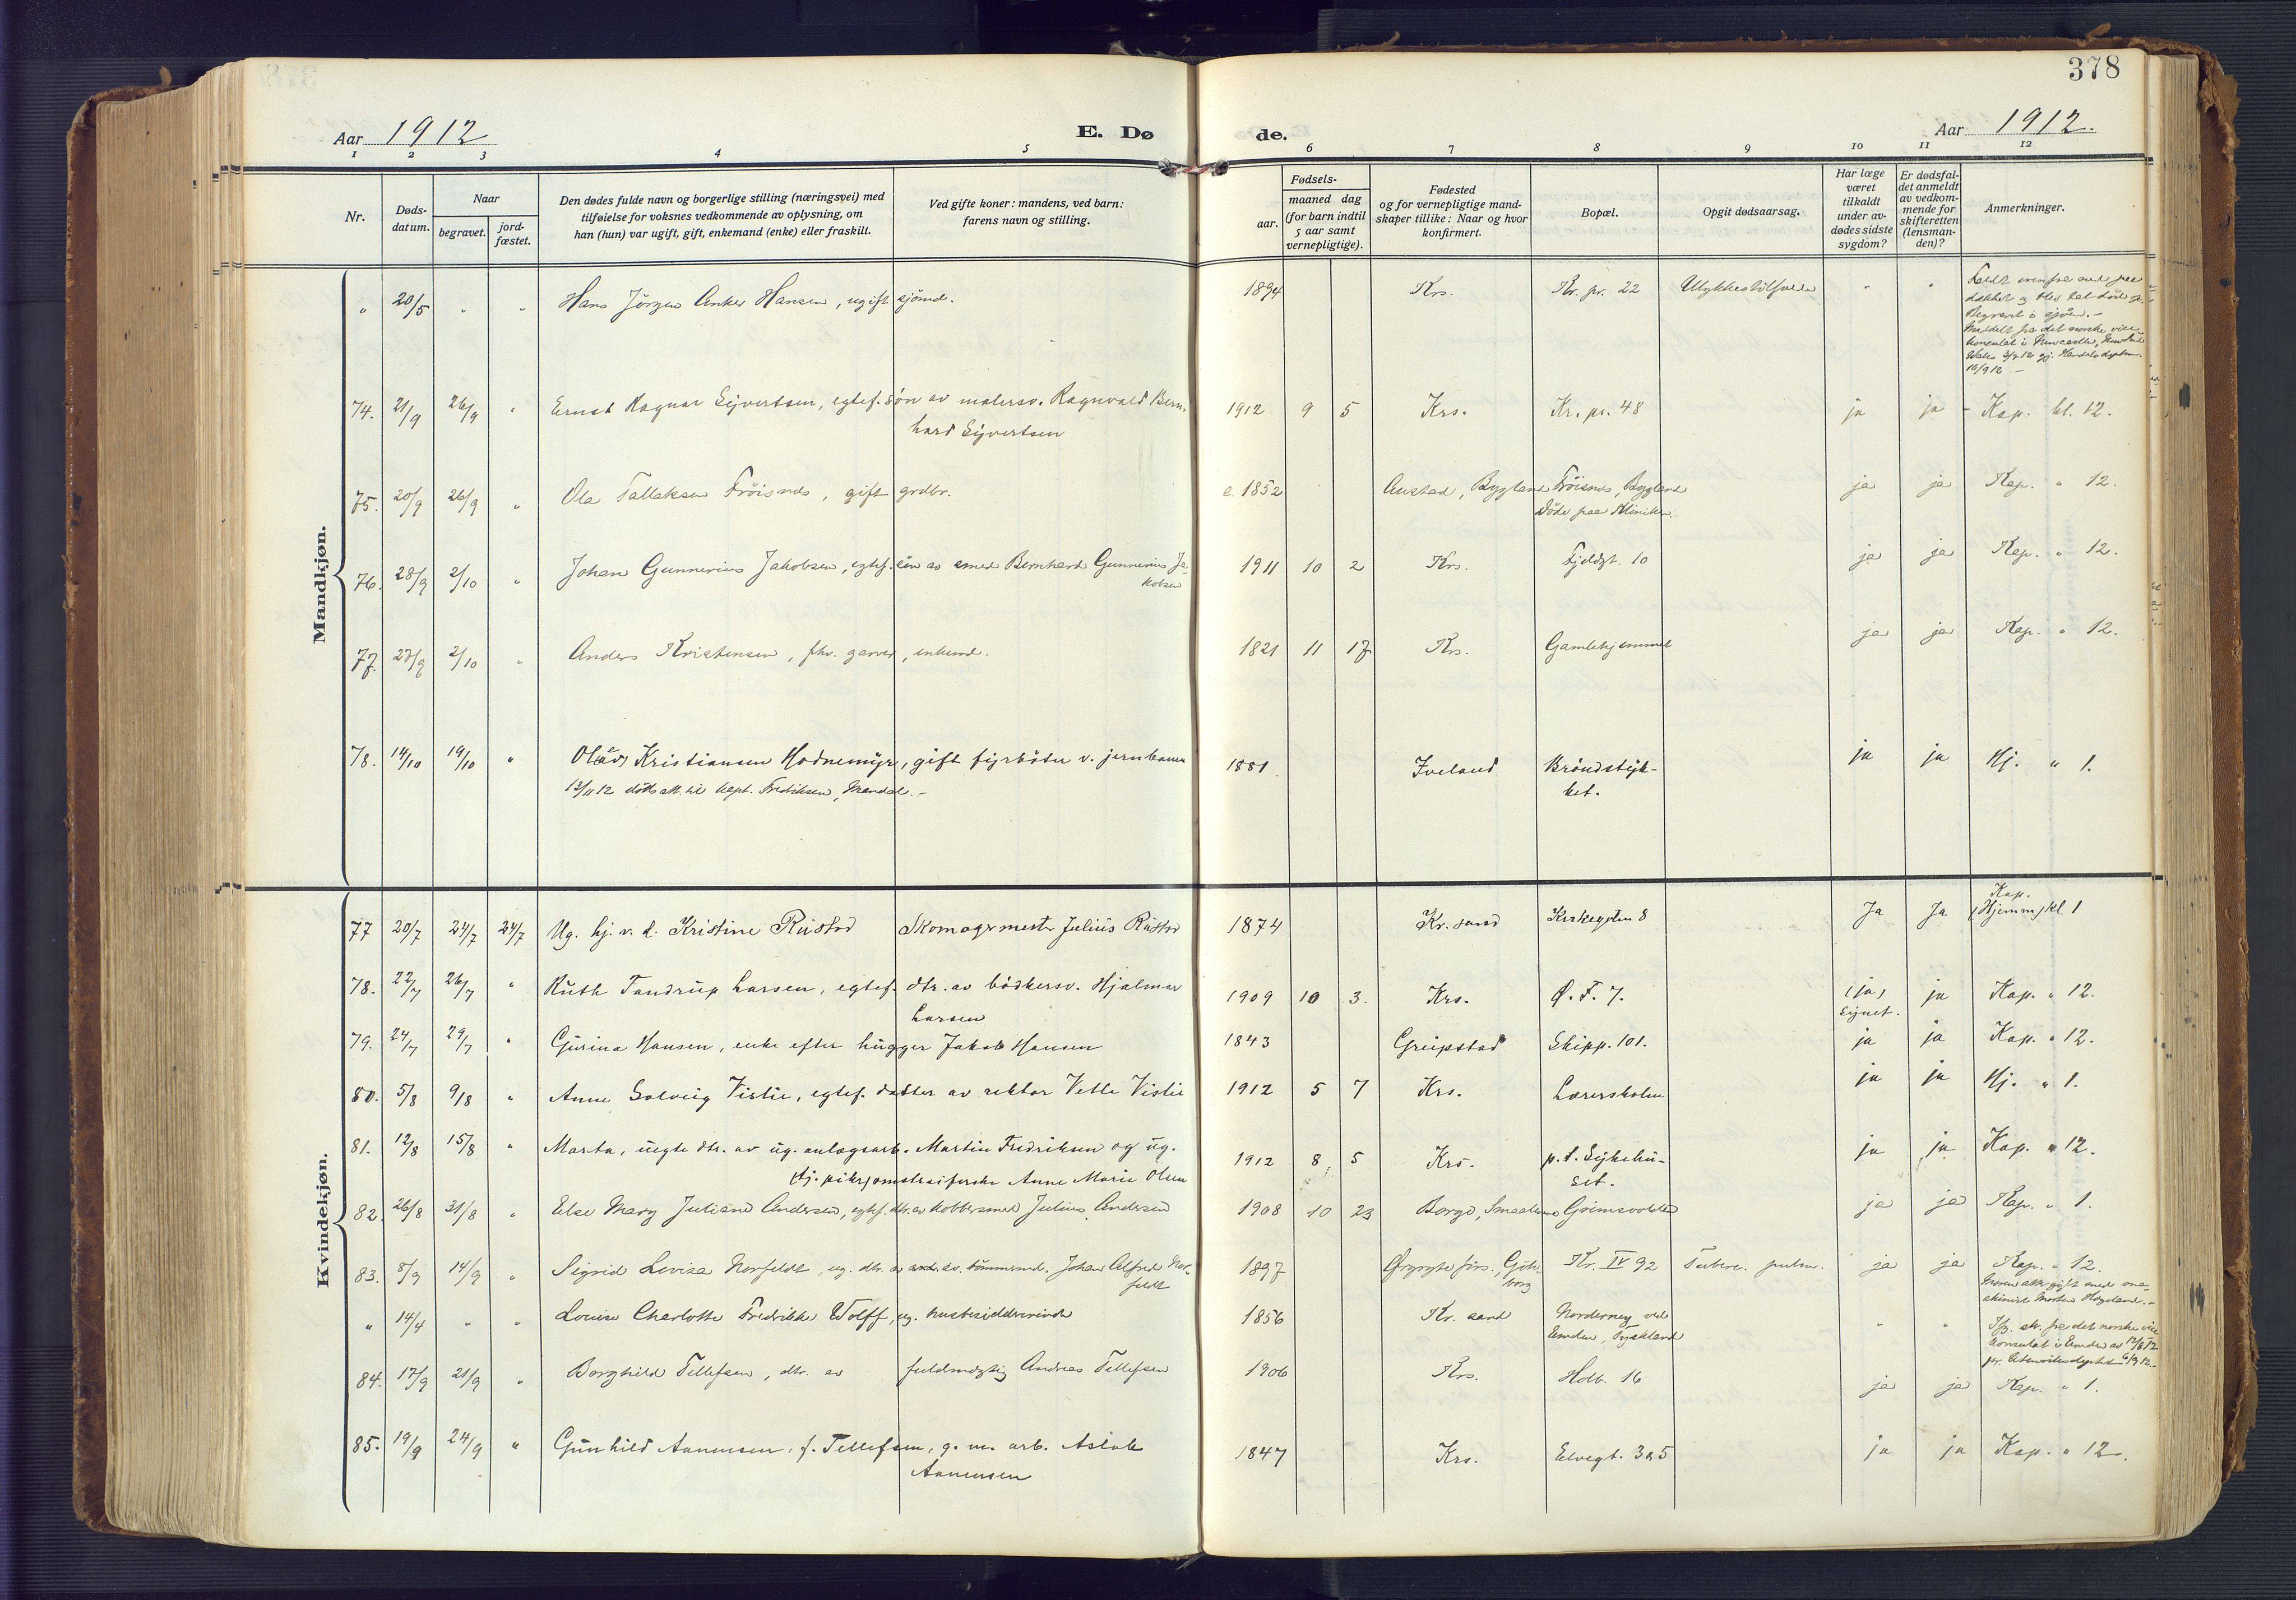 378
Aar 1912
E. Dø
de.
Aar 1912.
1 2 3 4 5 6 7 8 9 10 11 12
Nr.
Døds-
datum.
Naar
begravet.
jord-
fæstet.
Den dødes fulde navn og borgerlige stilling (næringsvei) med
tilføielse for voksnes vedkommende av oplysning, om
han (hun) var ugift, gift, enkemand (enke) eller fraskilt.
Ved gifte koner: mandens, ved barn:
farens navn og stilling.
Fødsels-
aar.
maaned dag
(for barn indtil
5 aar samt
vernepligtige).
Fødested
og for vernepligtige mand-
skaper tillike: Naar og hvor
konfirmert.
Bopæl.
Opgit dødsaarsag.
Har læge
været
tilkaldt
under av-
dødes sidste
sygdom?
Er dødsfal-
det anmeldt
av vedkom-
mende for
skifteretten
(lensman-
den)?
Anmerkninger.
Mandkjøn.
" 20/5 " " Hans Jörgen Anker Hansen, ugift sjömd. 1894 Krs. Kr. pr. 22 Ulykkestilfælde " "
Begravet i sjöen. -
Meddelt fra det norske vice-
konsulat i Newcastle,
74. 21/9 26/9 " Ernst Ragnar Syvertsen, egtef. sön av malersv. Ragnvald Bern-
hard Syvertsen 1912 9 5 Krs. Kr. pr. 48 ja ja - Kap. kl. 12.
75. 20/9 26/9 " Ola Tallaksen Fröisnes, gift grdbr. c. 1852 Austad, Bygland Fröisnes, Bygland
Döde paa Kliniken. ja ja Kap. " 12.
76. 28/9 2/10 " Johan Gunnerius Jakobsen, egtef. sön av smed Bernhard Gunnerius Ja-
kobsen 1911 10 2 Krs. Fjeldgt. 10 ja ja Kap. " 12.
77. 27/9 2/10 " Anders Kristensen, fhv. garver, enkemd. 1821 11 17 Krs. Gamlehjemmet ja ja Kap. " 12.
78. 14/10 19/10 " Olav Kristiansen Hodnemyr, gift fyrböter v. jernbanen 1881. Iveland Bröndstyk-
ket. ja ja Hj. " 1.
13/11 12 dödsatt. til kapt. Fredriksen, Mandal. -
Kvindekjøn.
77 20/7 24/7 24/7 Ug. hj. v. d. Kristine Rustad Skomagermester Julius Rustad 1874 Kr. sand Kirkegaten 8 Ja Ja Kap.
(Hjemm) kl 1
78. 22/7 26/7 " Ruth Tandrup Larsen, egtef. dtr. av bödkersv. Hjalmar
Larsen 1909 10 3. Krs. Ø. F. 7. (ja)
synet. ja Kap. " 12.
79. 24/7 29/7 " Gurina Hansen, enke efter hugger Jakob Hansen 1843 Greipstad Skipp. 101. ja ja Kap. " 12.
80. 5/8 9/8 " Anne Solveig Vislie, egtef. datter av rektor Vetle Vislie 1912 5 7 Krs. Lærerskolen ja ja Hj. " 1.
81. 12/8 15/8 " Marta, uegte dtr. av ug. anlægsarb. Martin Fredriksen og ug.
tj. pike, omstreiferske Anne Marie Olsen 1912 8 5 Krs. p. t. Sykehu-
set. ja ja Kap. " 12.
82. 26/8 31/8 " Else Mary Juliane Andersen, egtef. dtr. av kobbersmed Julius Andersen 1908 10 23 Borge, Smaalene Grimsvolden ja ja Kap. " 1.
83. 8/9 14/9 " Sigrid Lovisa Norfeldt, ug. dtr. av tömmermd. Johan Alfred Nor-
feldt 1897 Ørgryte förs., Göte-
borg Kr. IV 92 Tuberc. pulm. ja ja Kap. " 12.
Moren atter gift med ma-
skinist Morten Högeland. -
" 14/4 " " Louise Charlotte Fredrikke Wolff, ug. husbesidderinde 1856 Kr. sand Norderney ved
Emden, Tyskland " " Ifg. skr. fra det norske vice-
konsulat i Emden av 12/6 12
84. 17/9 21/9 " Borghild Tellefsen, dtr. av fuldmægtig Andreas Tellefsen 1906 Krs. Holb. 16 ja ja Kap. " 1.
85. 19/9 24/9 " Gunhild Aanensen, f. Tellefsen, g. m. arb. Aslak
Aanensen 1847 Krs. Elvegt. 3a5 ja ja Kap. " 12.